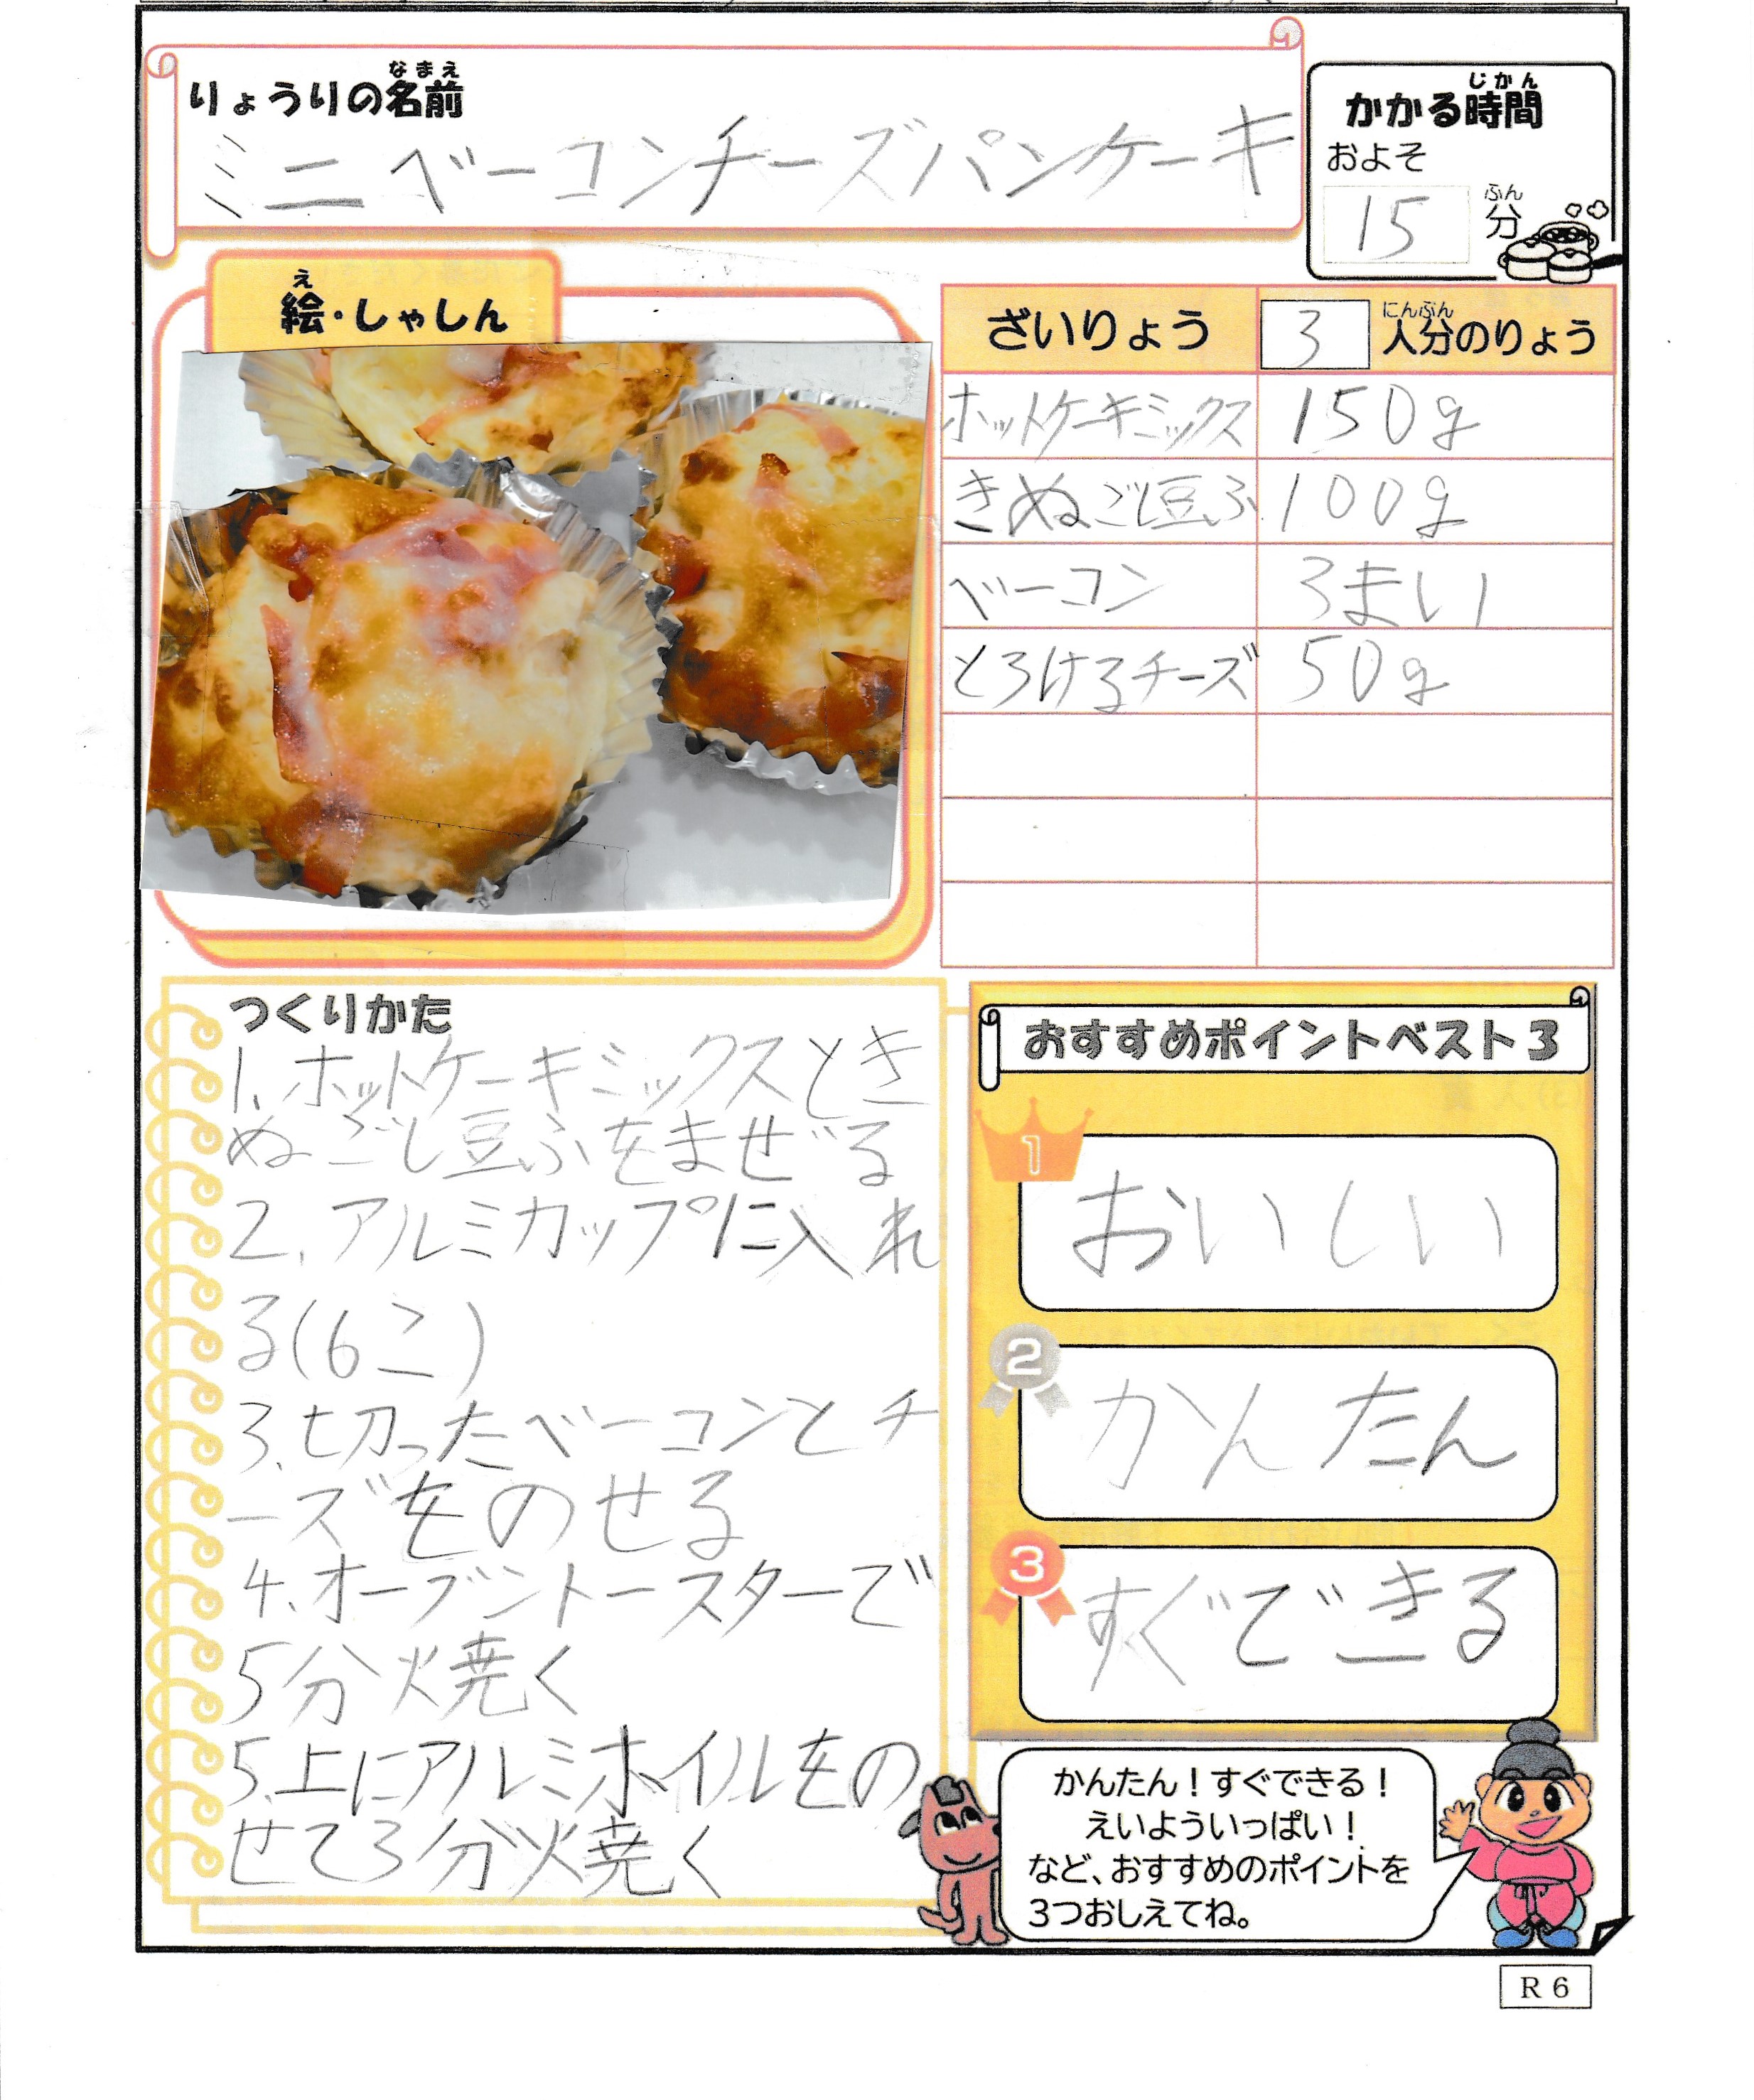 りょうりの名前
なまえ
ミニベーコンチーズパンケーキ
かかる時間
じかん
およそ
15分
ふん
絵・しゃしん
え
ざいりょう 3 人分のりょう
にんぶん
ホットケーキミックス 150g
きぬごし豆ふ 100g
ベーコン 3まい
とろけるチーズ 50g
つくりかた
1.ホットケーキミックスとき
ぬごし豆ふをまぜる
2.アルミカップに入れ
る(6こ)
3.切ったベーコンとチ
ーズをのせる
4.オーブントースターで
5分焼く
5.上にアルミホイルをの
せて3分焼く
おすすめポイントベスト3
1
おいしい
2
かんたん
3
すぐできる
かんたん!すぐできる!
えいよういっぱい!
など、おすすめのポイントを
3つおしえてね。
R6